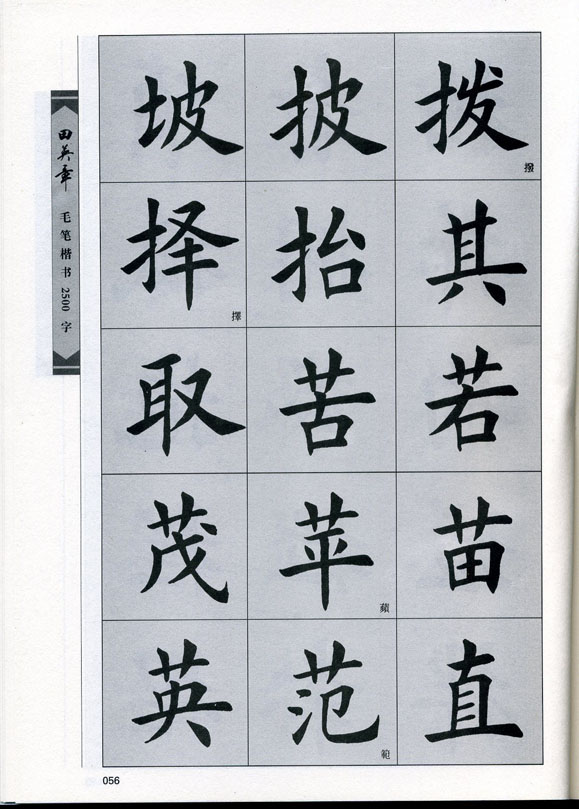 田英章 毛笔楷书 2500 字
坡 披 拨 撥
择 擇 抬 其
取 苦 若
茂 苹 蘋 苗
英 范 範 直
056